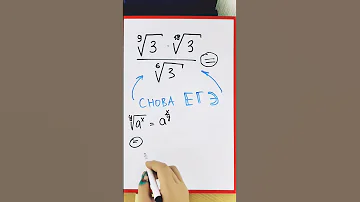 ⁹√3 · ¹⁸√3 / ⁶√3 =
СНОВА ЕГЭ
ʸ√aˣ = a^(x/y)
=